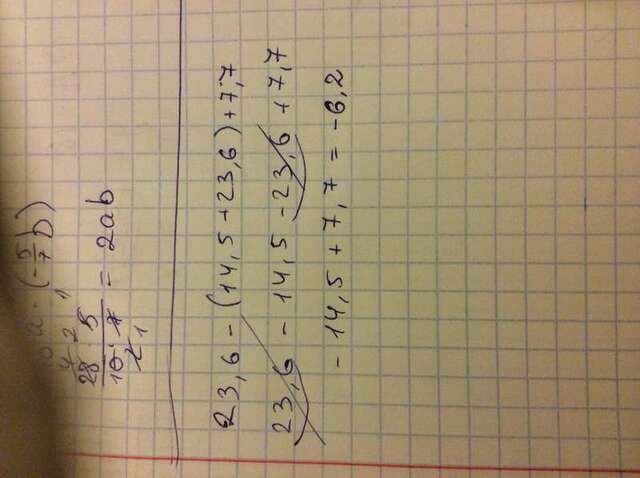 · (-5/7 b)
28 · 5 / 10 · 7 = 2ab
23,6 - (14,5 + 23,6) + 7,7
23,6 - 14,5 - 23,6 + 7,7
- 14,5 + 7,7 = -6,2